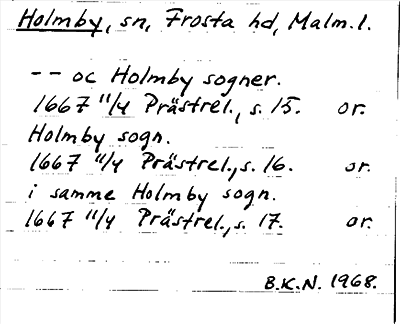 Holmby, sn, Frosta hd, Malm. l.
-- oc Holmby sogner.
1667 11/4 Prästrel., s. 15. or.
Holmby sogn.
1667 11/4 Prästrel., s. 16. or.
i samme Holmby sogn.
1667 11/4 Prästrel., s. 17. or.
B.K.N. 1968.